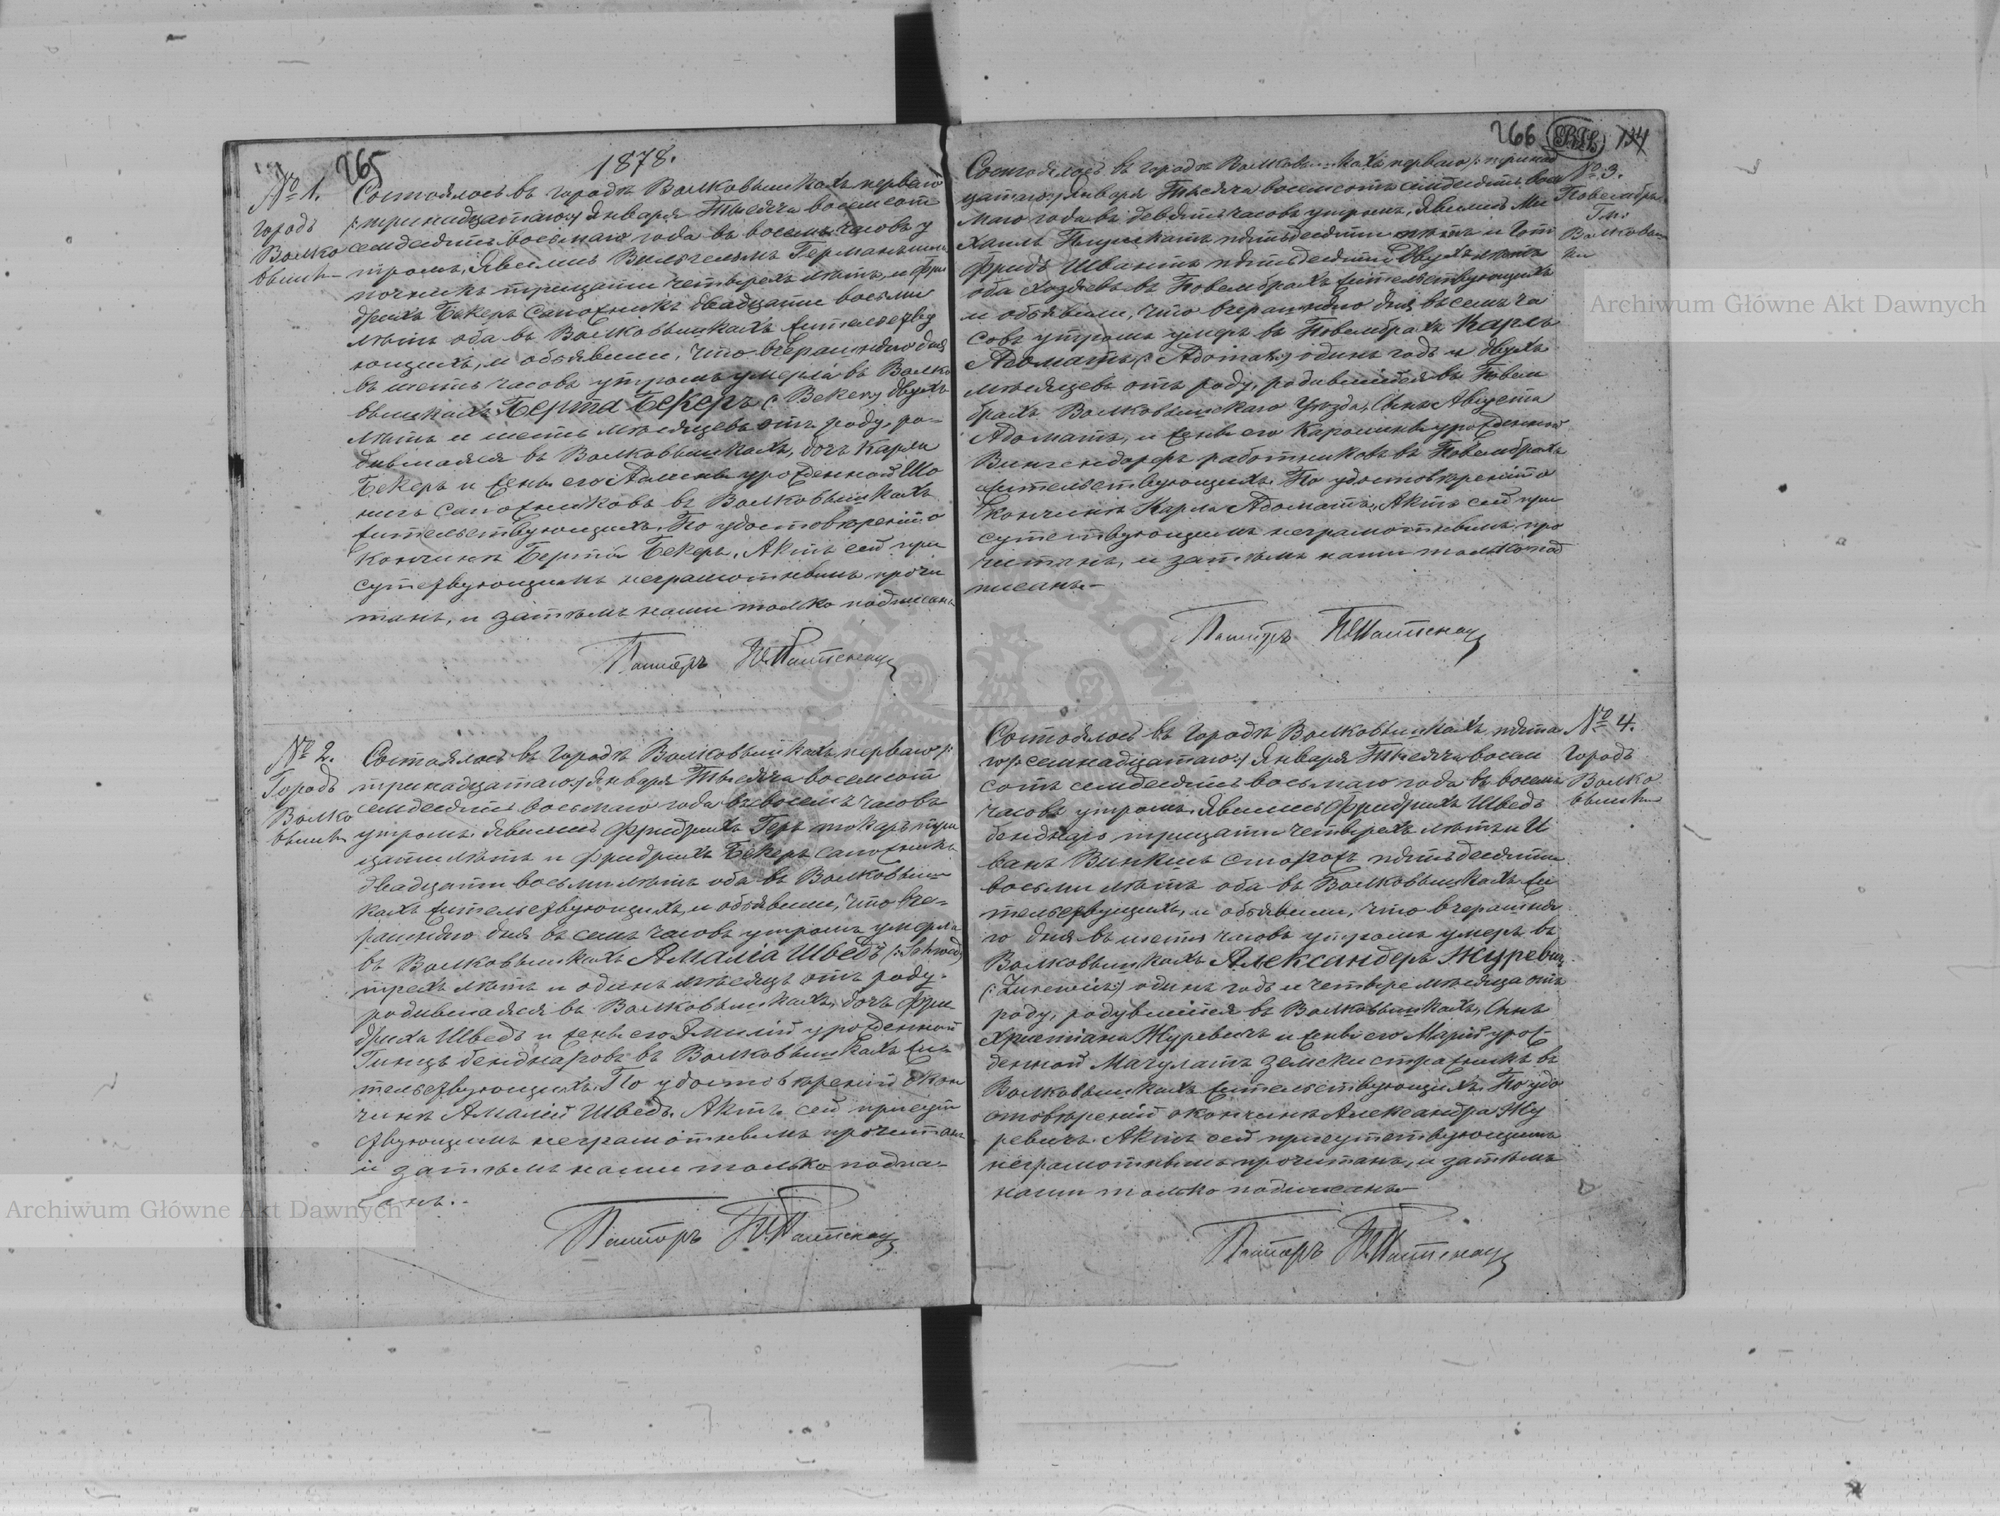 265
1878.
№ 1.
городъ
Волко
вышк
Состоялось въ городѣ Волковышкахъ перваго
(:тринадцатаго:) Января Тысяча восемсотъ
семдесятъ восьмаго года въ восемь часовъ у
тромъ, Явились Вильгельмъ Германъ
тридцати четырехъ лѣтъ, и Фри
дрихъ Бекеръ Сапожникъ двадцати восьми
лѣтъ оба въ Волковышкахъ жительству
ющихъ, и объявили, что вчерашняго дня
въ шесть часовъ утромъ умерла въ Волко
вышкахъ Берта Бекеръ (:Beker:) двухъ
лѣтъ и шесть мѣсяцевъ отъ роду, ро-
дившаяся въ Волковышкахъ, дочь Карла
Бекеръ и жены его урожденной Шо
сапожниковъ въ Волковышкахъ
жительствующихъ. По удостовѣреніи о
кончинѣ Берты Бекеръ, Актъ сей при
сутствующимъ неграмотнымъ прочи
танъ, и затѣмъ нами только подписанъ
Пасторъ
№ 2.
Городъ
Волко
вышк
Состоялось въ Городѣ Волковышкахъ перваго (:
тринадцатаго:) Января Тысяча восемсотъ
семдесятъ восьмаго года въ восемь часовъ
утромъ. Явились Фридрихъ Геръ токарь три
цати лѣтъ и Фридрихъ Бекеръ сапожникъ
двадцати восьми лѣтъ оба въ Волковыш-
кахъ жительствующихъ, и объявили, что вче-
рашняго дня въ семь часовъ утромъ умерла
въ Волковышкахъ Амалія Шведъ (:Schwed:)
трехъ лѣтъ и одинъ мѣсяцъ отъ роду.
родившаяся въ Волковышкахъ, дочь Фри
дриха Шведъ и жены его Эмиліи урожденной
Гинцъ беднаровъ въ Волковышкахъ жи-
тельствующихъ. По удостовѣреніи о кон
чинѣ Амаліи Шведъ. Актъ сей присут
ствующимъ неграмотнымъ прочитанъ
и затѣмъ нами только подпи-
санъ.-
Пасторъ
266
134
№ 3.
Повембры
Гм.
Волковыш
ки
Состоялось въ городѣ Волковышкахъ перваго (:тринад
цатаго:) Января Тысяча восемсотъ семдесятъ вось
маго года въ девять часовъ утромъ, Явились Ми
хаилъ пятьдесяти лѣтъ и Гот
фридъ пятьдесяти двухъ лѣтъ
оба хозяевъ въ Повембрахъ жительствующихъ
и объявили, что вчерашняго дня въ семь ча
совъ утромъ умеръ въ Повембрахъ Карлъ
Адоматъ (:Adomat:) одинъ годъ и двухъ
мѣсяцевъ отъ роду, родившійся въ Повем
брахъ Волковышскаго Уѣзда, Сынъ Августа
Адоматъ, и жены его Каролины урожденной
Вингендорфъ работниковъ въ Повембрахъ
жительствующихъ. По удостовѣреніи о
кончинѣ Карла Адоматъ, Актъ сей при
сутствующимъ неграмотнымъ про
читанъ, и затѣмъ нами только под
писанъ.-
Пасторъ
№ 4.
Городъ
Волко
вышки
Состоялось въ Городѣ Волковышкахъ, пята
го (:семнадцатаго:) Января Тысяча восем
сотъ семдесятъ восьмаго года въ восемь
часовъ утромъ. Явились Фридрихъ Шведъ
беднаръ трицати четырехъ лѣтъ и И
ванъ Винкель сторожъ пятьдесяти
восьми лѣтъ оба въ Волковышкахъ жи
тельствующихъ, и объявили, что вчерашня
го дня въ шесть часовъ утромъ умеръ въ
Волковышкахъ Александеръ Журевичъ
(:Zurewicz:) одинъ годъ и четыре мѣсяца отъ
роду, родувшійся въ Волковышкахъ, Сынъ
Христіана Журевичъ и жены его Маріи урож
денной Мачулатъ земски стражникъ въ
Волковышкахъ жительствующихъ. По удо
стовѣреніи о кончинѣ Александра Жу
ревичъ. Актъ сей присутствующимъ
неграмотнымъ прочитанъ, и затѣмъ
нами только подписанъ
Пасторъ
Archiwum Główne Akt Dawnych
Archiwum Główne Akt Dawnych